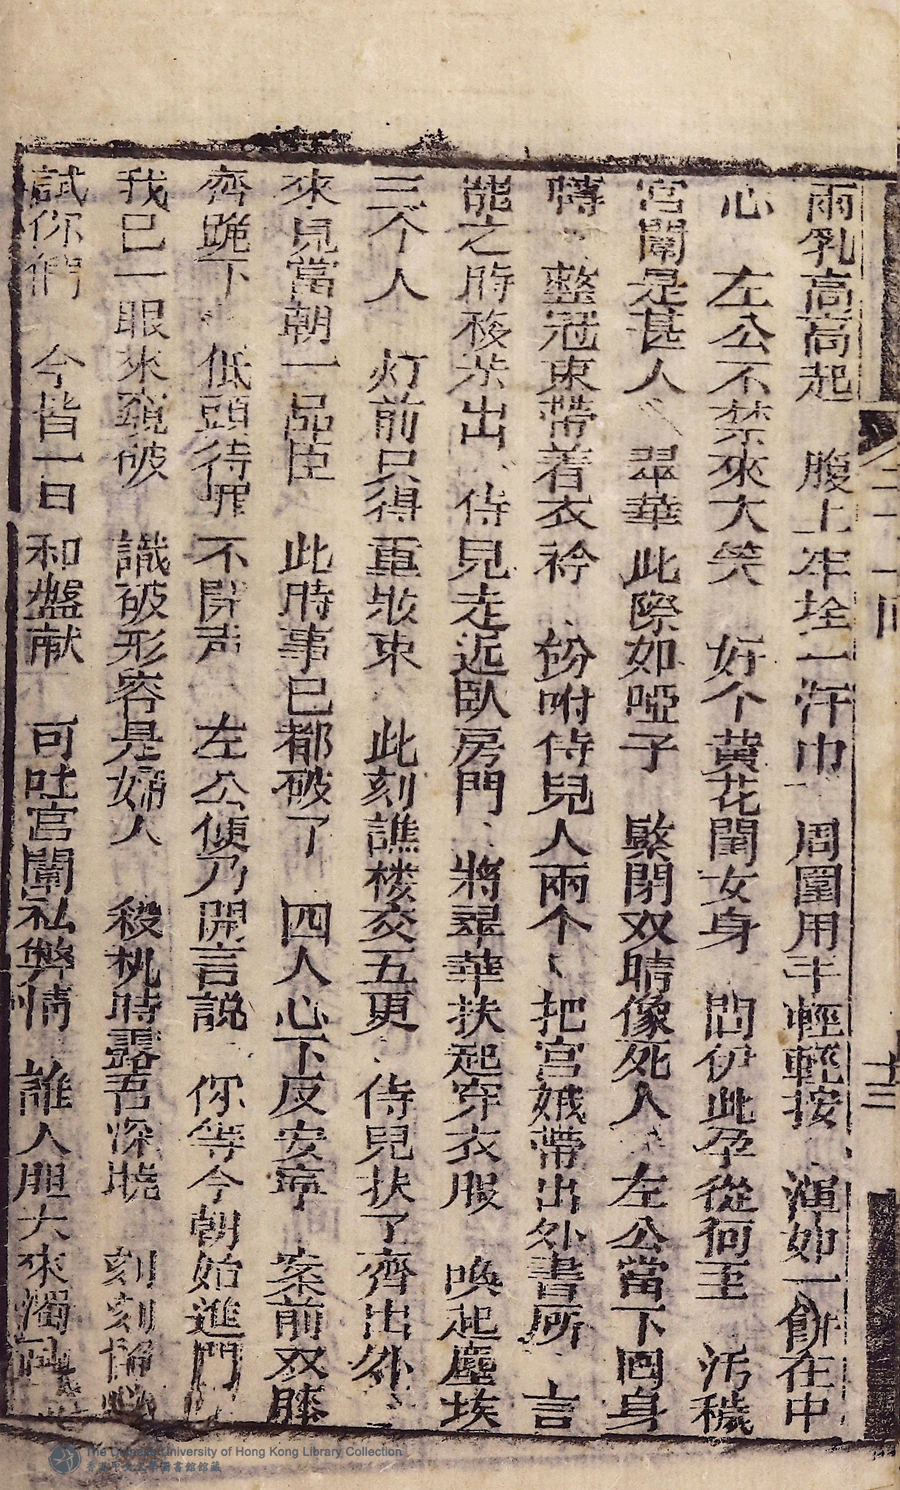 兩乳高高起 腹上牢拴一汗巾 周圍用手輕輕按 渾如一餅在中
心 左公不禁來大笑 好个黃花閨女身 問伊此孕從何至 污穢
宮闈是甚人 翠華此際如啞子 緊閉双睛像死人 左公當下回身
轉 整冠束帶着衣衿 吩咐侍兒人兩个 把宮娥帶出外書所 言
能之時移步出 侍兒走近臥房門 將翠華扶起穿衣服 喚起塵埃
三个人 灯前只得重妝束 此刻譙楼交五更 侍兒扶了齊出外
來見當朝一品臣 此時事已都破了 四人心下反安寧 案前双膝
齊跪下 低頭待罪不開声 左公便乃開言説 你等今朝始進門
我已一眼來窺破 識破形容是婦人 殺机時露吾深曉 刻刻
試你們 今皆一日和盤献 可吐宮闈私弊情 誰人胆大來
二十一回
十三
The Chinese University of Hong Kong Library Collection
香港中文大學圖書館館藏